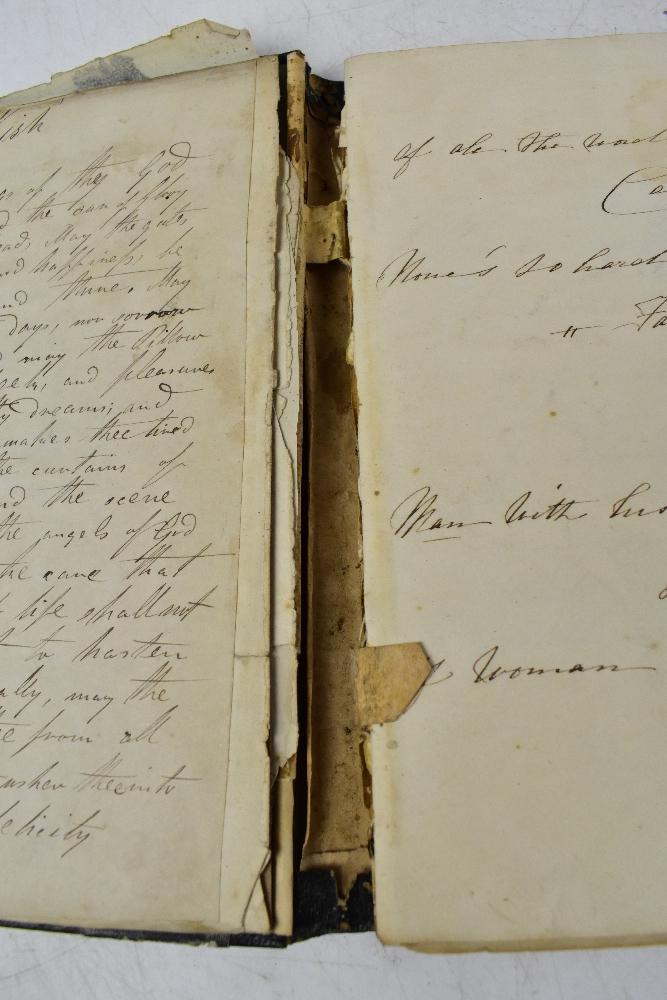 Wish
of thy God
the dan of Glory
May the gates
and happiness be
and thine. May
days, nor sorrow
may the Pillow
and pleasures
dreams; and
makes thee tired
the curtains of
and the scene
the angels of God
the cane that
life shall not
to hasten
may the
from all
usher thee into
felicity
of ale the
None's so hard
" Fa
Man with his
Woman